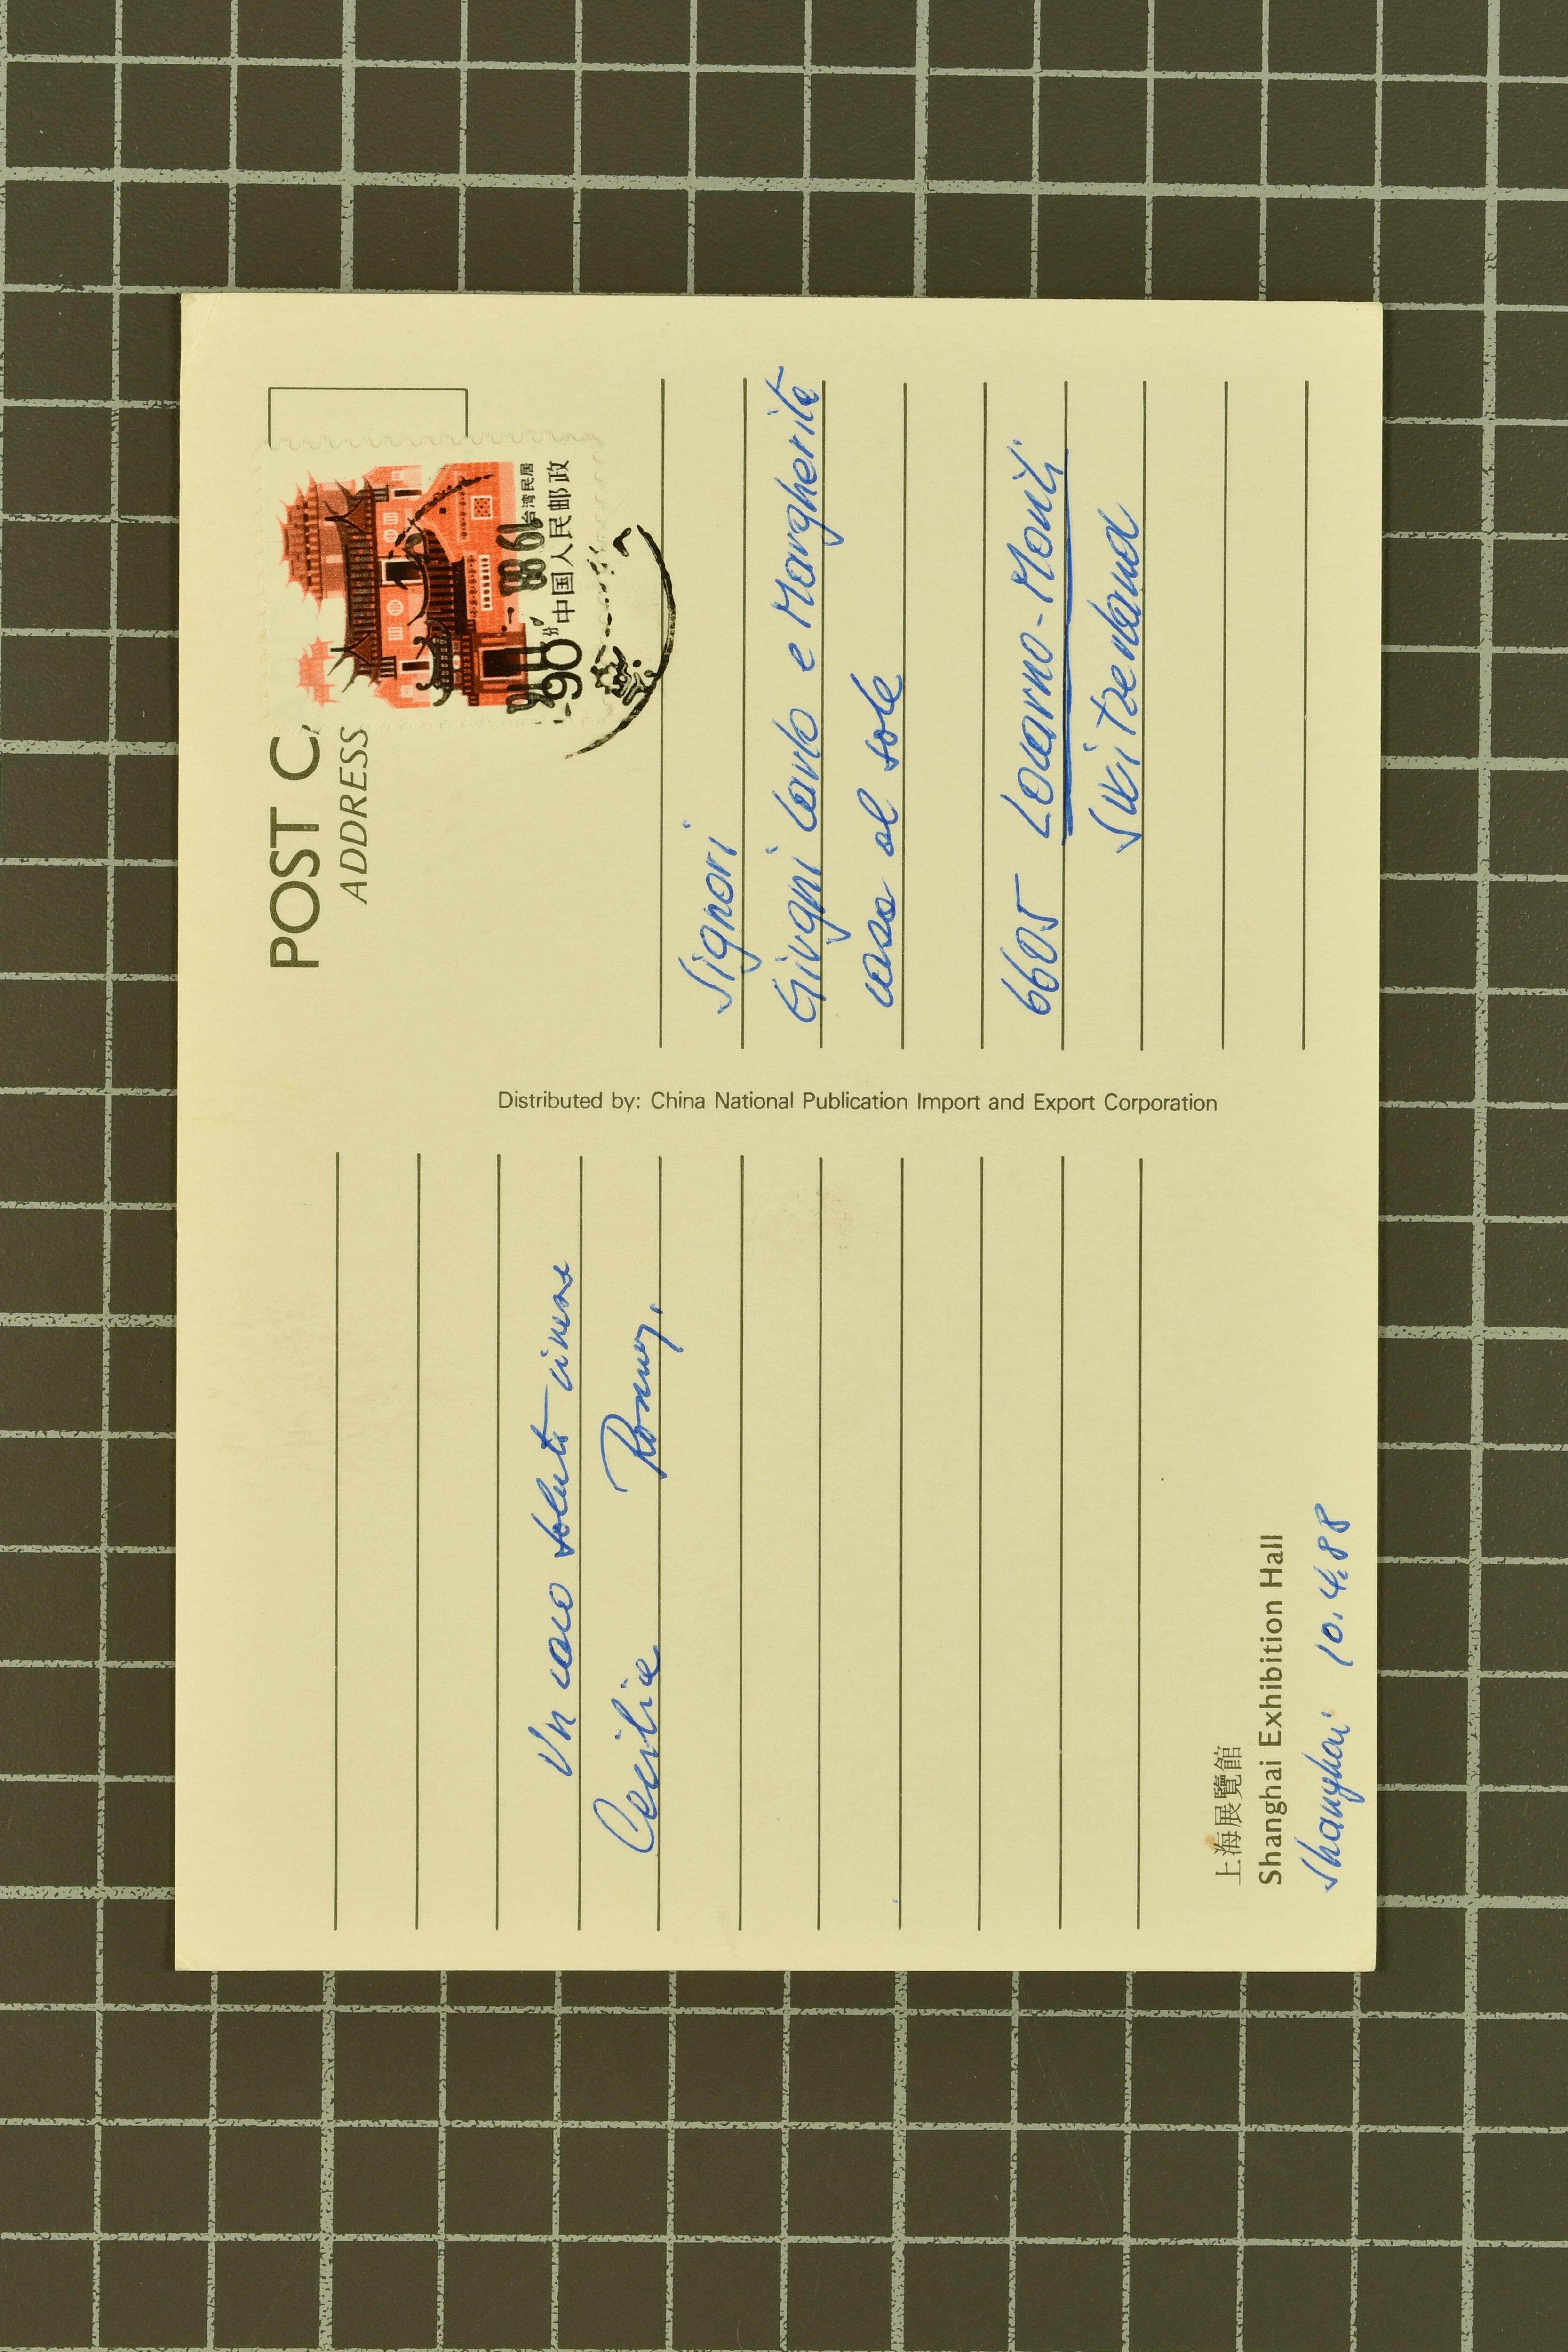 POST C
ADDRESS
台湾民居
中国人民邮政
90分
1988
Signori
Giugni Carlo e Margherita
casa al sole
6605 Locarno-Monti
Switzerland
Distributed by: China National Publication Import and Export Corporation
Un caro saluto cinese
Cecilia Romy.
上海展覽館
Shanghai Exhibition Hall
Shanghai 10.4.88